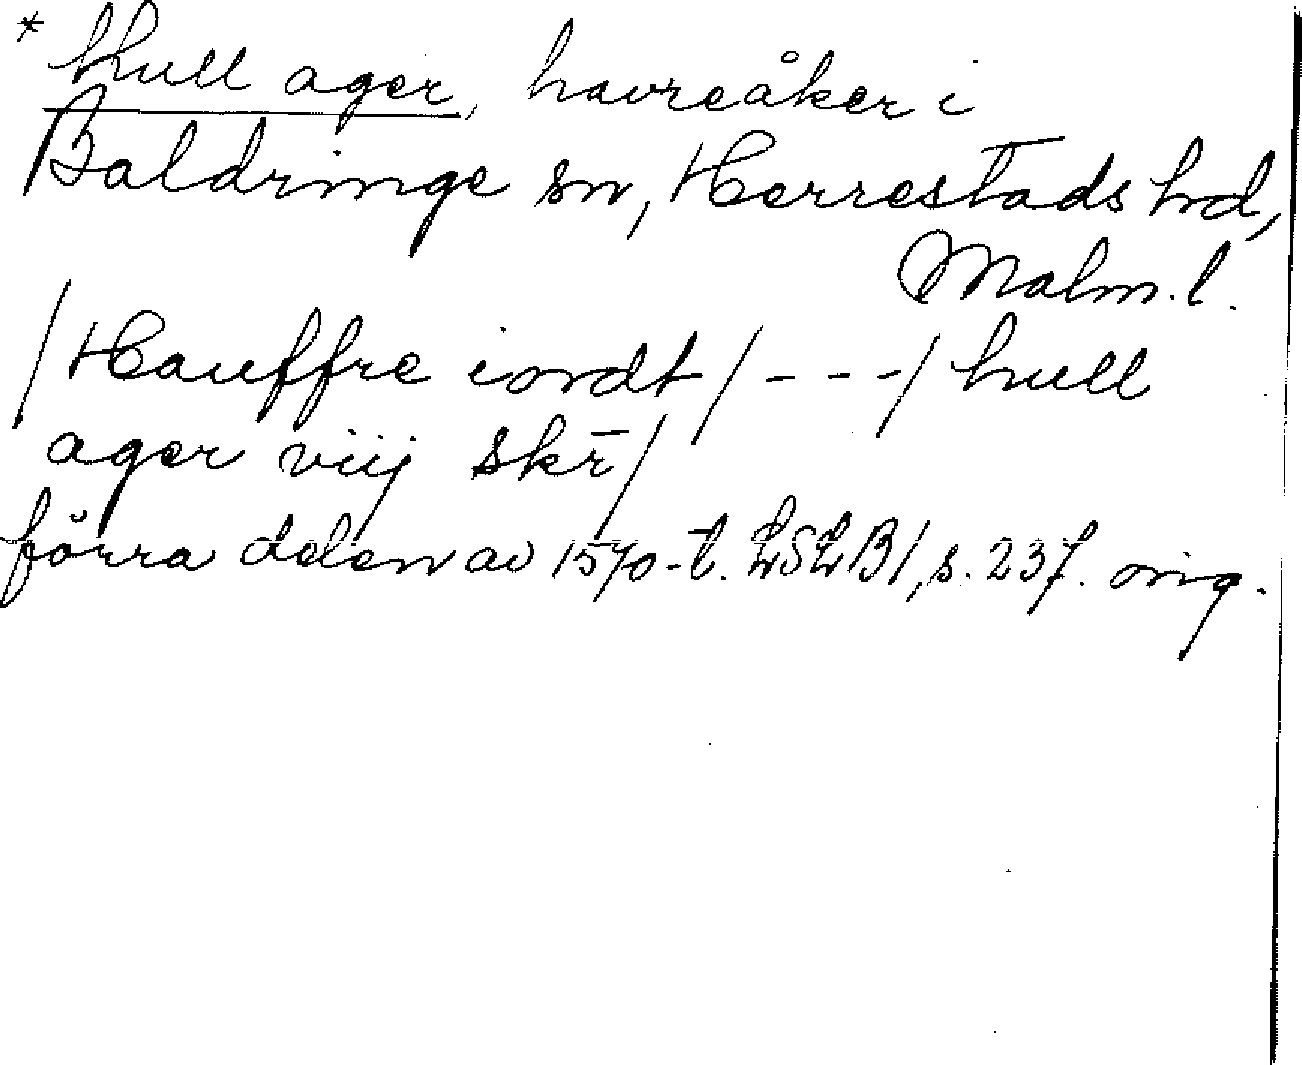 * hull ager, havreåker i
Baldringe sn, Herrestads hd,
Malm. l.
/Hauffre iordt/---/hull
ager viij skr̄/
förra delen av 1570-t. LSLB1, s. 237. orig.